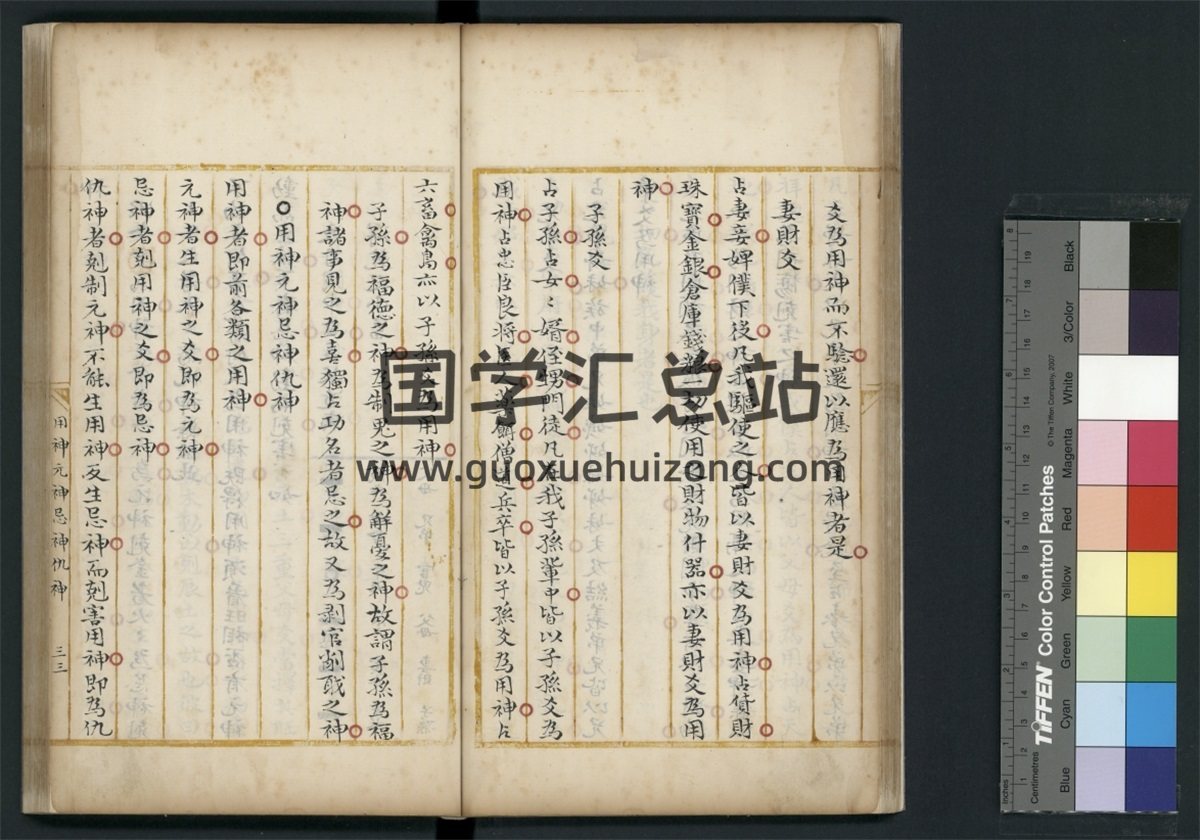 爻為用神而不驗還以應為用神者是
妻財爻
占妻妾婢僕下役凡我驅使之人皆以妻財爻為用神占貨財
珠寶金銀倉庫錢粮一切使用之財物什器亦以妻財爻為用
神
子孫爻
占子孫占女〻婿侄甥門徒凡在我子孫輩中皆以子孫爻為
用神占忠臣良將人藥餌僧道兵卒皆以子孫爻為用神占
六畜禽鳥亦以子孫爻為用神
子孫為福德之神為制鬼之神為解憂之神故謂子孫為福
神諸事見之為喜獨占功名者忌之故又為剥官削職之神
○用神元神忌神仇神
用神者即前各類之用神
元神者生用神之爻即為元神
忌神者尅用神之爻即為忌神
仇神者尅制元神不能生用神反生忌神而尅害用神即為仇
用神元神忌神仇神 三三
国学汇总站
www.guoxuehuizong.com
TIFFEN Color Control Patches
© The Tiffen Company, 2007
Inches
Centimetres
Blue
Cyan
Green
Yellow
Red
Magenta
White
3/Color
Black